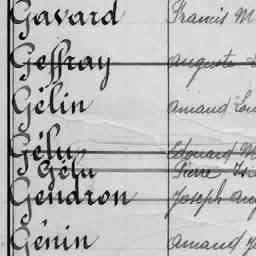 Gavard Francis M
Geffray Auguste
Gélin Amand Lou
Gélu Edouard M
Gélu Pierre
Gendron Joseph Aug
Génin Amand